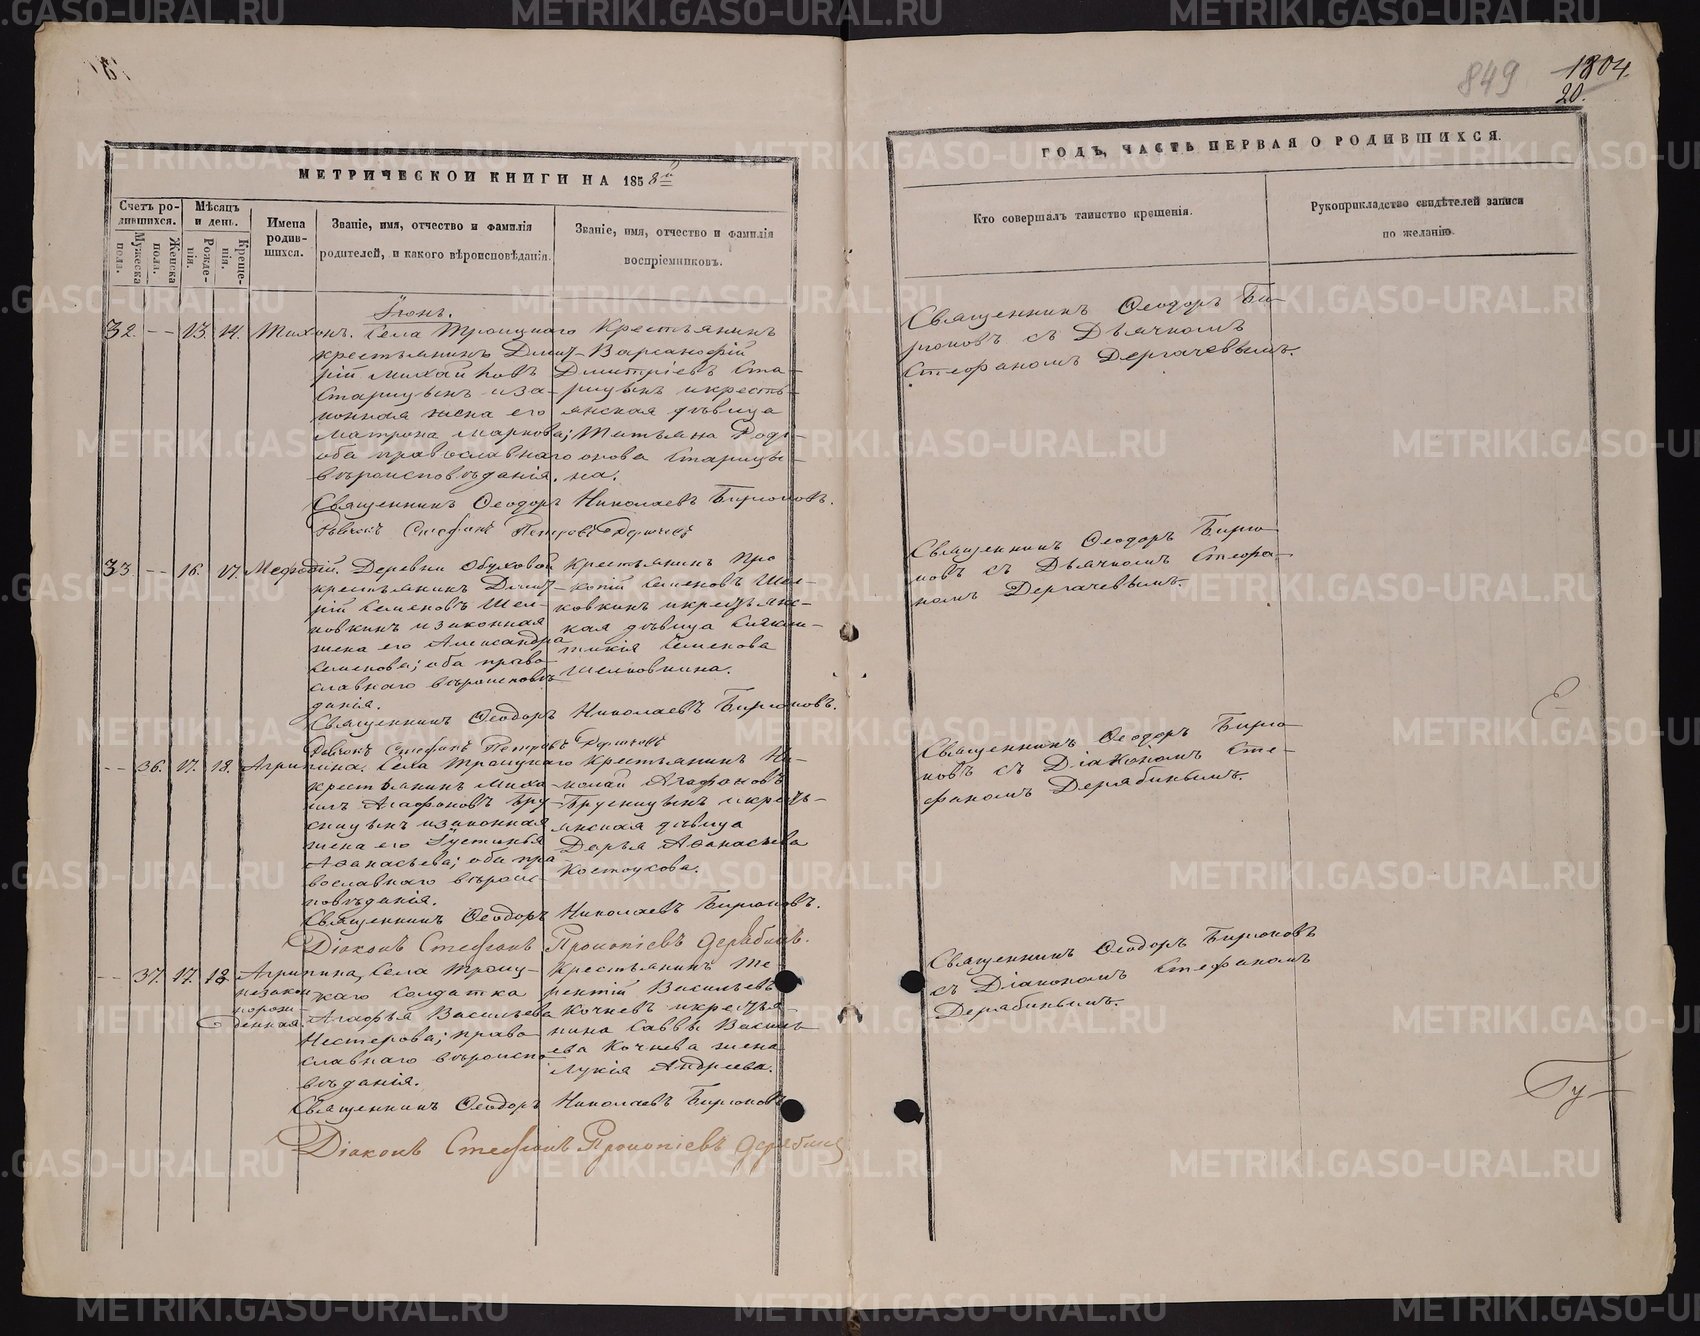 849
1804.
20.
МЕТРИЧЕСКОИ КНИГИ НА 1858й
Счетъ родившихся.
Мѣсяцъ и день.
Имена родившихся.
Званіе, имя, отчество и фамилія родителей, и какого вѣроисповѣданія.
Званіе, имя, отчество и фамилія воспріемниковъ.
Мужеска пола.
Женска пола.
Рожденія.
Крещенія.
Іюнь.
32. -- 13. 14. Тихонъ.
Села Троицкаго
крестьянинъ Дмит-
рій Михайловъ
Старицынъ и за-
конная жена его
Матрона Маркова;
оба православнаго
вѣроисповѣданія.
Крестьянинъ
Варсанофій
Дмитріевъ Ста-
рицынъ и кресть-
янская дѣвица
Татьяна Роди-
онова Старицы-
на.
Священникъ Ѳеодоръ Николаевъ Бирюковъ.
Дьячокъ Стефанъ Петровъ Дергачевъ
33 -- 16. 17. Меѳодій.
Деревни Обуховой
крестьянинъ Дмит-
рій Семеновъ Шел-
ковкинъ и законная
жена его Александра
Семенова; оба право-
славнаго вѣроисповѣ-
данія.
Крестьянинъ Про
копій Семеновъ Шел-
ковкинъ и крестьянс-
кая дѣвица
Семенова
Шелковкина.
Священникъ Ѳеодоръ Николаевъ Бирюковъ.
Дьячокъ Стефанъ Петровъ Дергачевъ
-- 36. 17. 18. Агрипина.
Села Троицкаго
крестьянинъ Миха
илъ Агафоновъ Бру-
сницынъ и законная
жена его Іустинья
Аѳанасьева; оба пра-
вославнаго вѣроис-
повѣданія.
Крестьянинъ Ни-
колай Агафоновъ
Брусницынъ и кресть-
янская дѣвица
Дарья Аѳанасьева
Костоусова.
Священникъ Ѳеодоръ Николаевъ Бирюковъ.
Діаконъ Стефанъ Прокопіевъ Дерябинъ.
-- 37. 17. 18 Агрипина,
незакон
норож-
денная.
Села Троиц-
каго солдатка
Агафья Васильева
Нестерова; право-
славнаго вѣроиспо-
вѣданія.
Крестьянинъ Те-
рентій Васильевъ
Кочневъ и крестья-
нина Саввы Василь-
ева Кочнева жена
Лукія Андреева.
Священникъ Ѳеодоръ Николаевъ Бирюковъ
Діаконъ Стефанъ Прокопіевъ Дерябинъ
ГОДЪ, ЧАСТЬ ПЕРВАЯ О РОДИВШИХСЯ.
Кто совершалъ таинство крещенія.
Рукоприкладство свидѣтелей записи
по желанію.
Священникъ Ѳеодоръ Би-
рюковъ съ Дьячкомъ
Стефаномъ Дергачевымъ.
Священникъ Ѳеодоръ Бирю-
ковъ съ Дьячкомъ Стефа-
номъ Дергачевымъ.
Священникъ Ѳеодоръ Бирю-
ковъ съ Діакономъ Сте-
фаномъ Дерябинымъ.
Священникъ Ѳеодоръ Бирюковъ
съ Діакономъ Стефаномъ
Дерябинымъ.
METRIKI.GASO-URAL.RU